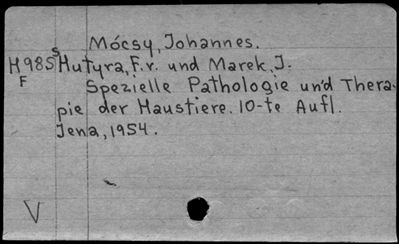 Mócsy, Johannes.
H985s Hutyra, F.v. und Marek, J.
F
Spezielle Pathologie und Thera-
pie der Haustiere. 10-te Aufl.
Jena, 1954.
V